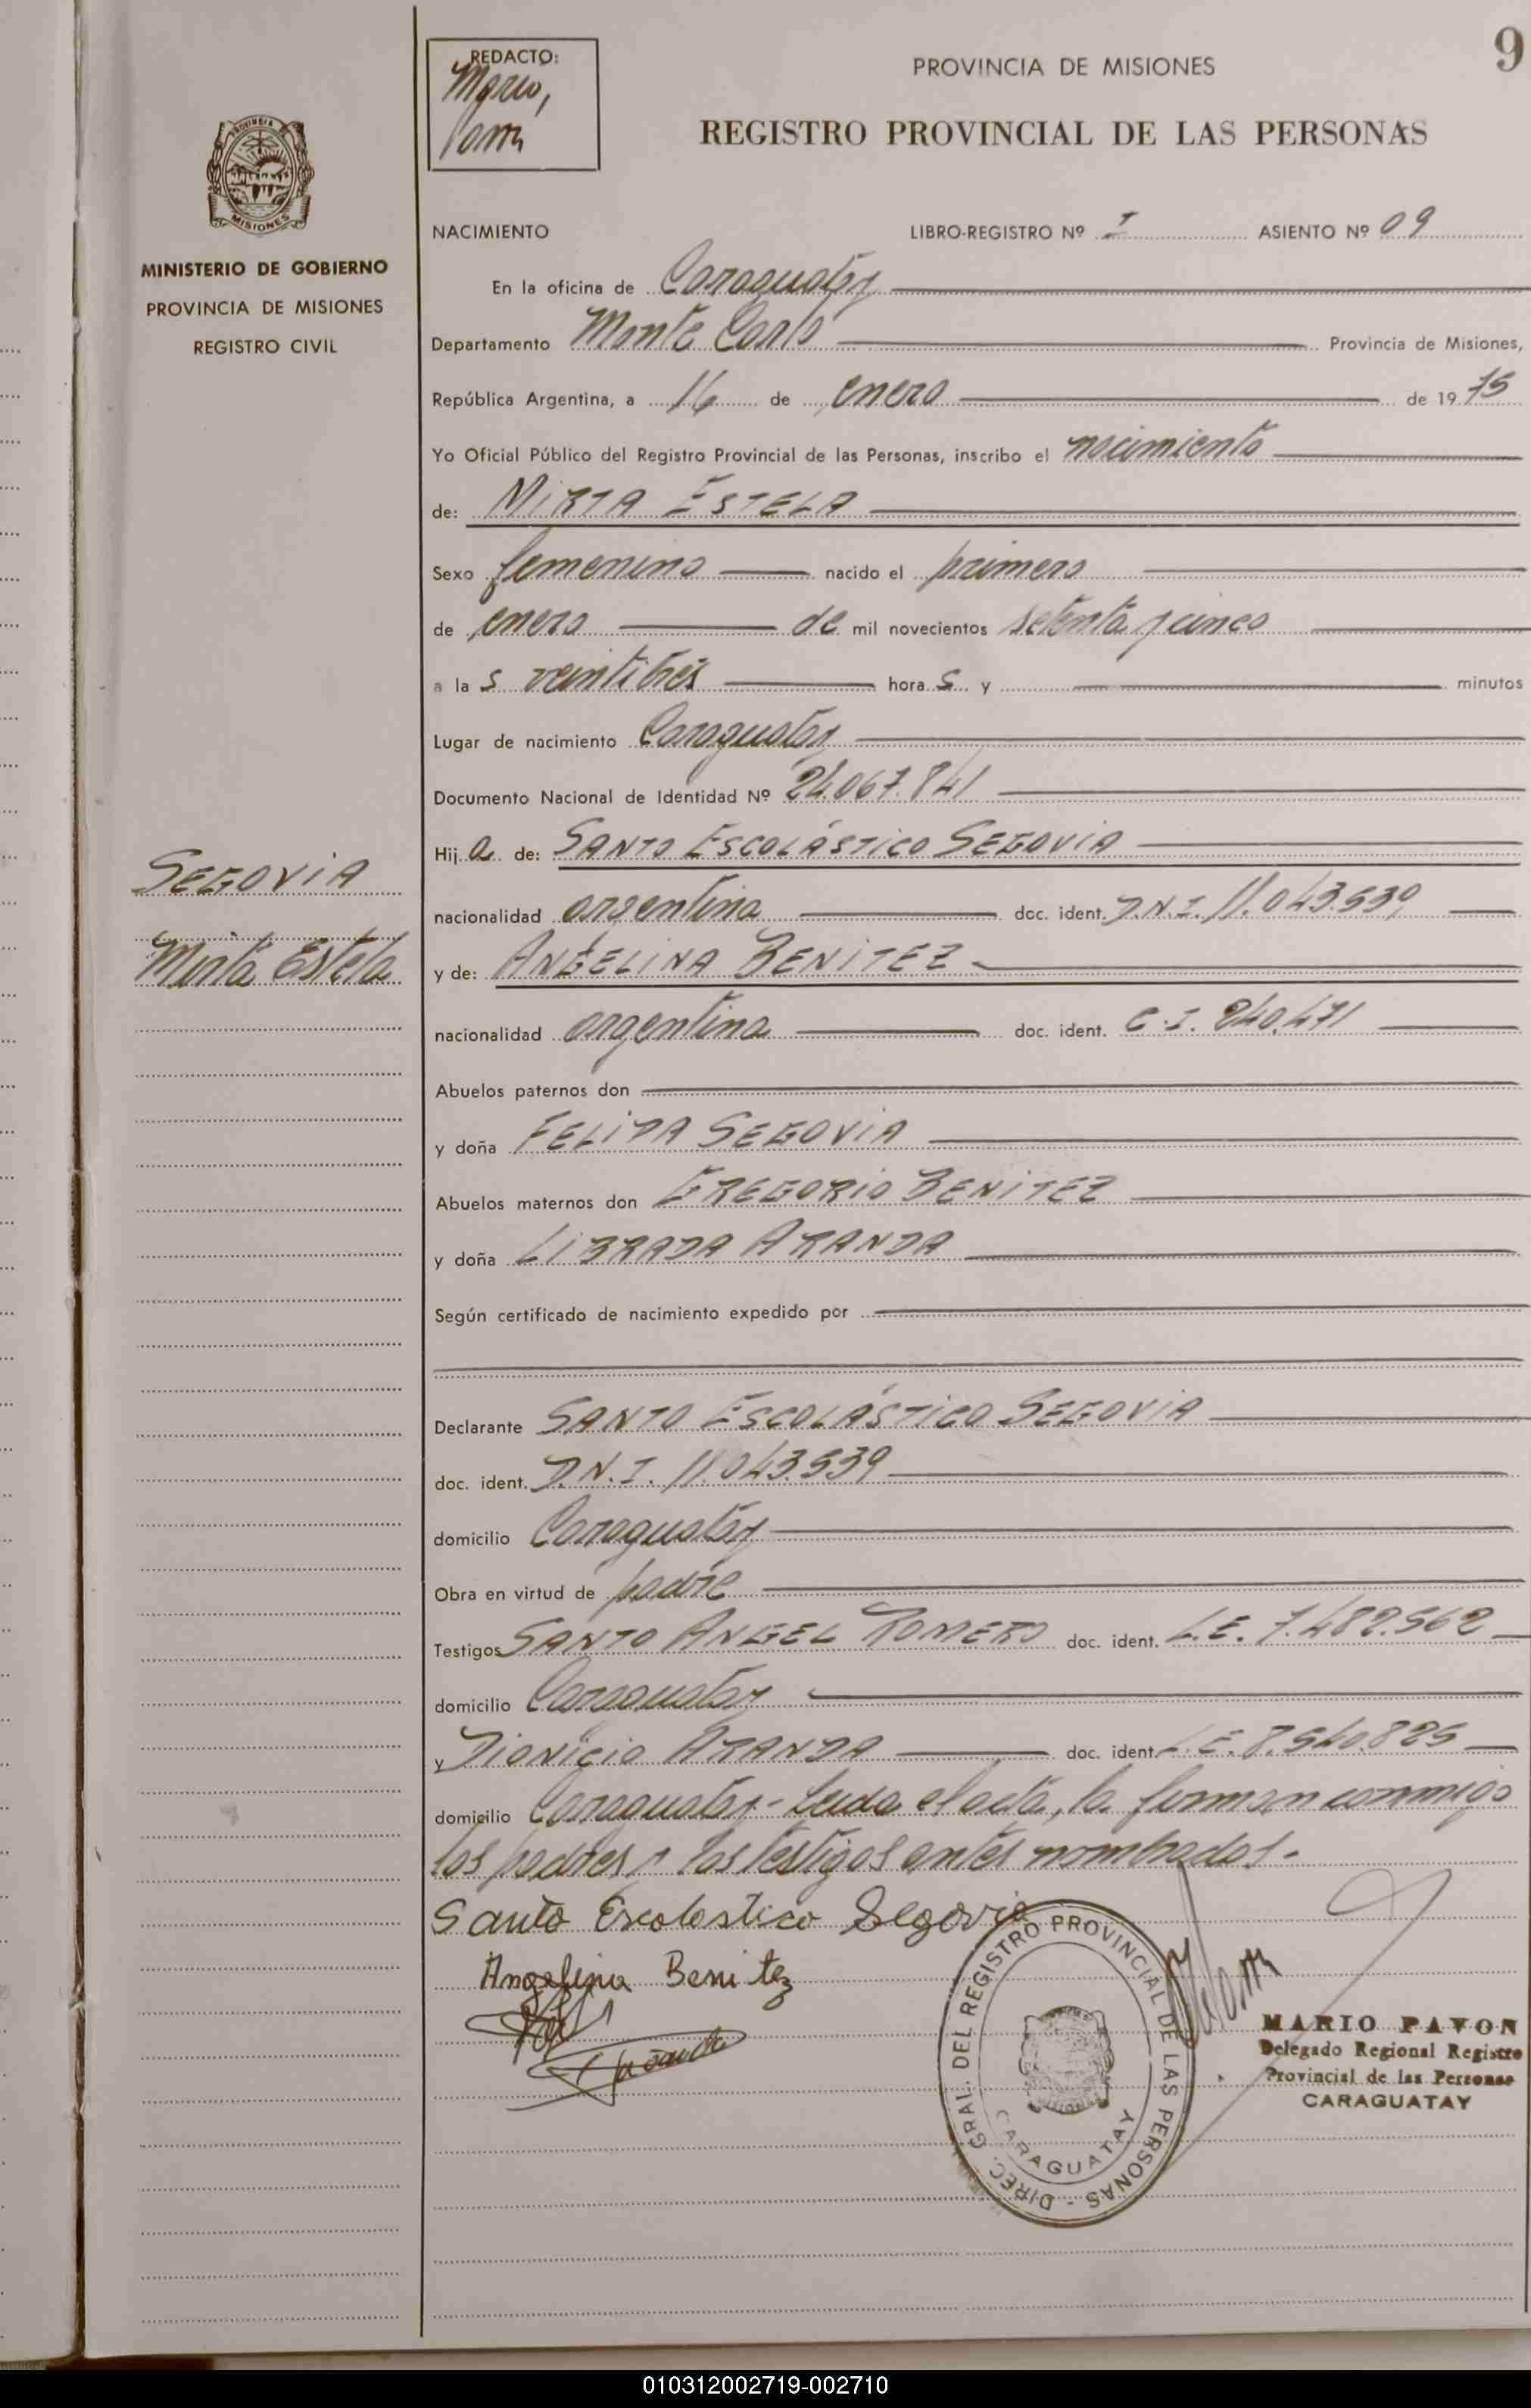 9
REDACTO:
Mario,
PROVINCIA DE MISIONES
REGISTRO PROVINCIAL DE LAS PERSONAS
PROVINCIA
MISIONES
MINISTERIO DE GOBIERNO
PROVINCIA DE MISIONES
REGISTRO CIVIL
NACIMIENTO LIBRO-REGISTRO Nº I ASIENTO Nº 09
En la oficina de Caraguatay
Departamento Monte Carlo Provincia de Misiones,
República Argentina, a 16 de enero de 1975
Yo Oficial Público del Registro Provincial de las Personas, inscribo el nacimiento
de: MIRTA ESTELA
Sexo femenino nacido el primero
de enero de mil novecientos setenta y cinco
a las veintitrés horas y minutos
Lugar de nacimiento Caraguatay
Documento Nacional de Identidad Nº 24.067.841
Hija de: SANTO ESCOLÁSTICO SEGOVIA
SEGOVIA
Mirta Estela
nacionalidad argentina doc. ident. D.N.I. 11.043.539
y de: ANGELINA BENITEZ
nacionalidad argentina doc. ident. C.I. 240.471
Abuelos paternos don
y doña FELIPA SEGOVIA
Abuelos maternos don GREGORIO BENITEZ
y doña LIBRADA ARANDA
Según certificado de nacimiento expedido por
Declarante SANTO ESCOLÁSTICO SEGOVIA
doc. ident. D.N.I. 11.043.539
domicilio Caraguatay
Obra en virtud de padre
Testigos SANTO ANGEL ROMERO doc. ident. L.E. 7.482.562
domicilio Caraguatay
y DIONICIO ARANDA doc. ident. L.E. 8.540.825
domicilio Caraguatay - Leida el acta, la firman conmigo
los padres y los testigos antes nombrados.-
Santo Escolastico Segovia
Angelina Benitez
DIREC. GRAL. DEL REGISTRO PROVINCIAL DE LAS PERSONAS -
CARAGUATAY
MARIO PAVON
Delegado Regional Registro
Provincial de las Personas
CARAGUATAY
010312002719-002710